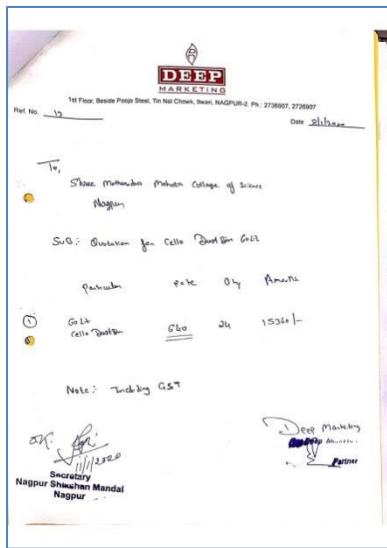 DEEP
MARKETING
1st Floor, Beside Pooja Steel, Tin Nal Chowk, Itwari, NAGPUR-2. Ph.: 2736907, 2726907
Ref. No. 12
Date 8/1/2020
To,
Shree Mathuradas Mohota College of Science
Nagpur
Sub: Quotation for Cello Dustbin 60Lt
Particular Rate Qty Amount
① 60Lt
Cello Dustbin 640 24 15360/-
Note: Including GST
O.K.
11/1/2020
Secretary
Nagpur Shikshan Mandal
Nagpur
Deep Marketing
Partner